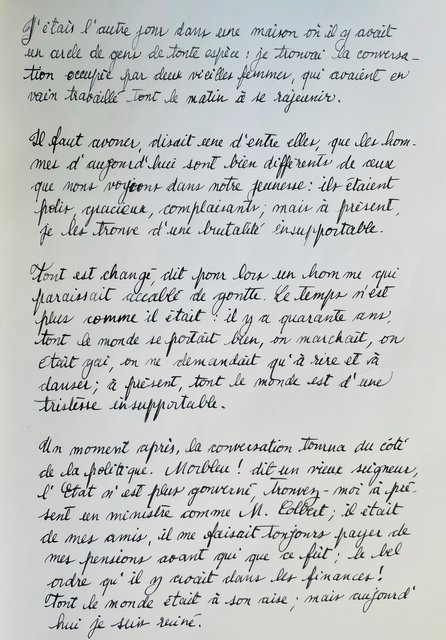 J'étais l'autre jour dans une maison où il y avait
un cercle de gens de toute espèce : je trouvai la conversa-
tion occupée par deux vieilles femmes, qui avaient en
vain travaillé tout le matin à se rajeunir.
Il faut avouer, disait une d'entre elles, que les hom-
mes d'aujourd'hui sont bien différents de ceux
que nous voyions dans notre jeunesse : ils étaient
polis, gracieux, complaisants ; mais à présent,
je les trouve d'une brutalité insupportable.
Tout est changé, dit pour lors un homme qui
paraissait accablé de goutte. Le temps n'est
plus comme il était : il y a quarante ans,
tout le monde se portait bien, on marchait, on
était gai, on ne demandait qu'à rire et à
danser ; à présent, tout le monde est d'une
tristesse insupportable.
Un moment après, la conversation tourna du côté
de la politique. Morbleu ! dit un vieux seigneur,
l'État n'est plus gouverné, trouvez-moi à pré-
sent un ministre comme M. Colbert ; il était
de mes amis, il me faisait toujours payer de
mes pensions avant qui que ce fût ; le bel
ordre qu'il y avait dans les finances !
Tout le monde était à son aise ; mais aujourd'
hui je suis ruiné.